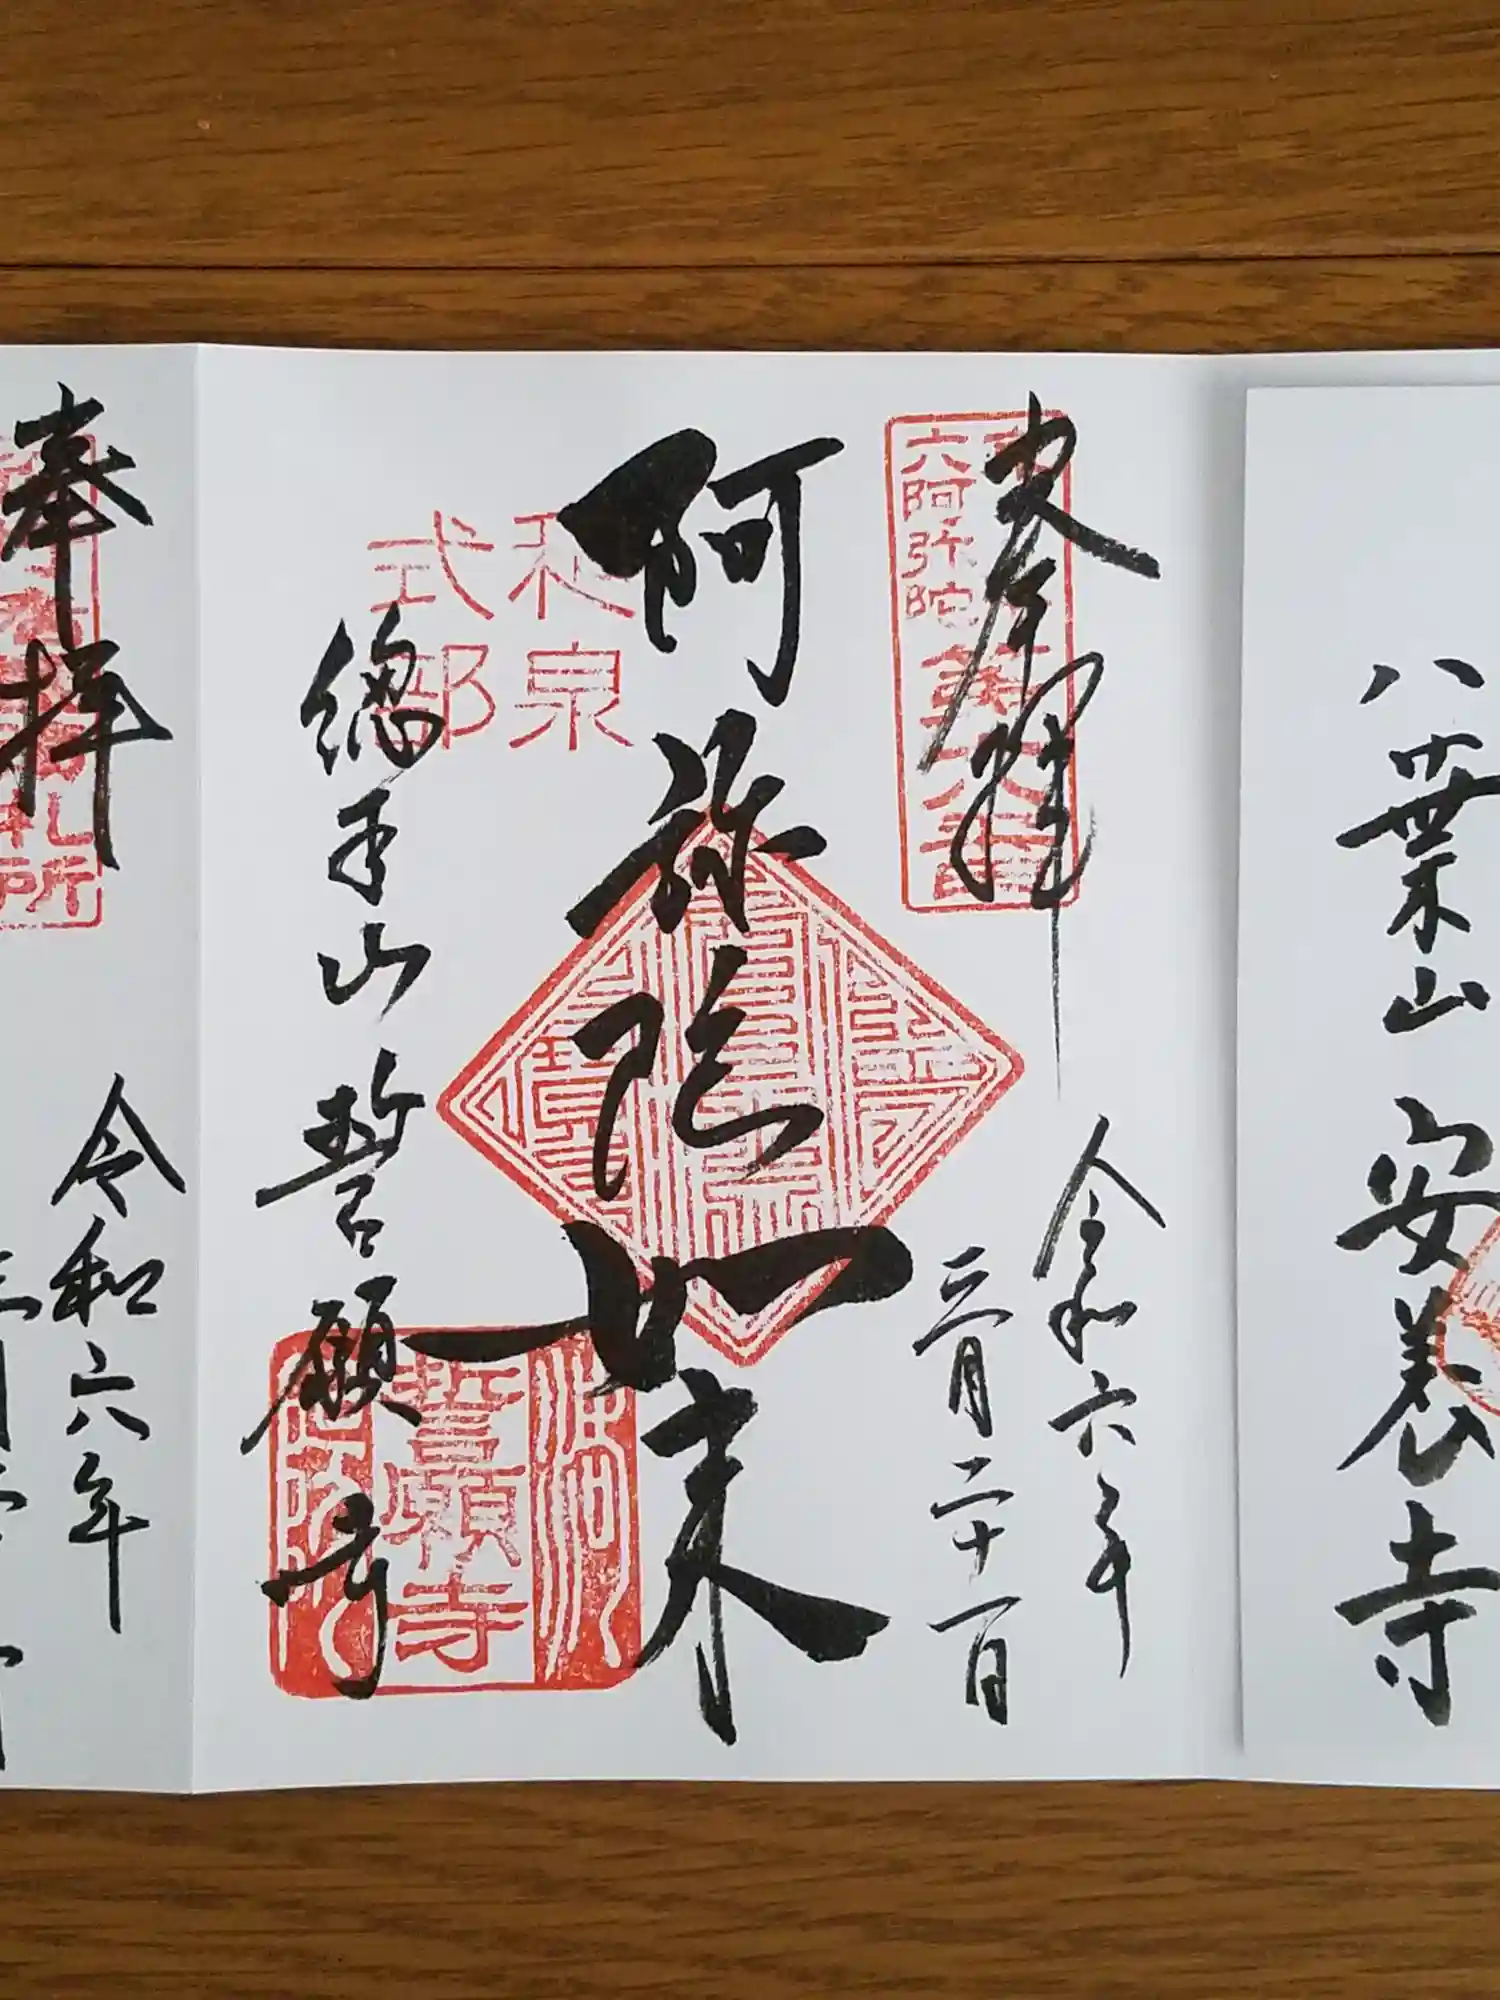 八葉山 安養寺
奉拝
六阿弥陀
第六番
令和六年
三月二十一日
阿弥陀如来
和泉
式部
総本山 誓願寺
誓願寺
奉拝
札所
令和六年